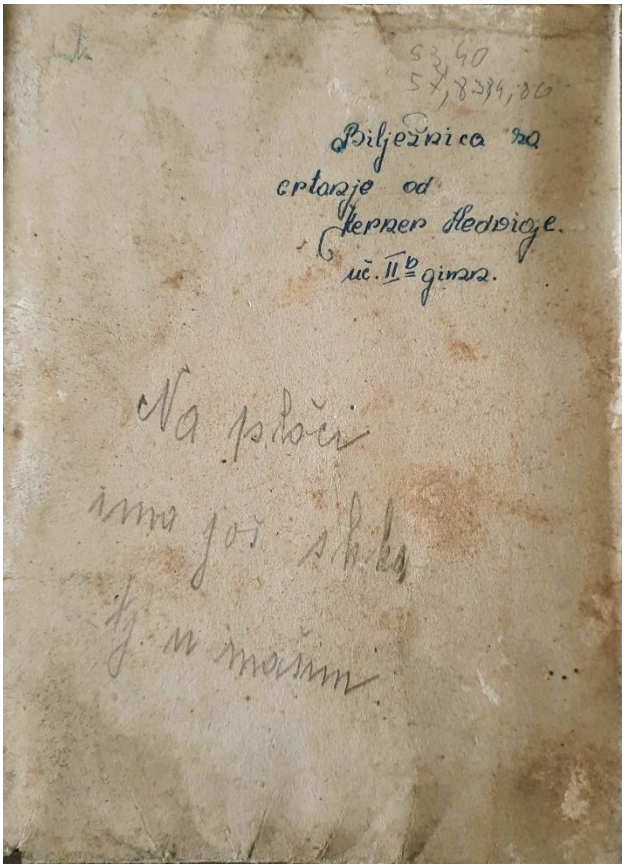 53,40
Bilježnica za
crtanje od
Kerner Hedvige.
uč. II b gimn.
Na ploči
ima još slika
tj u